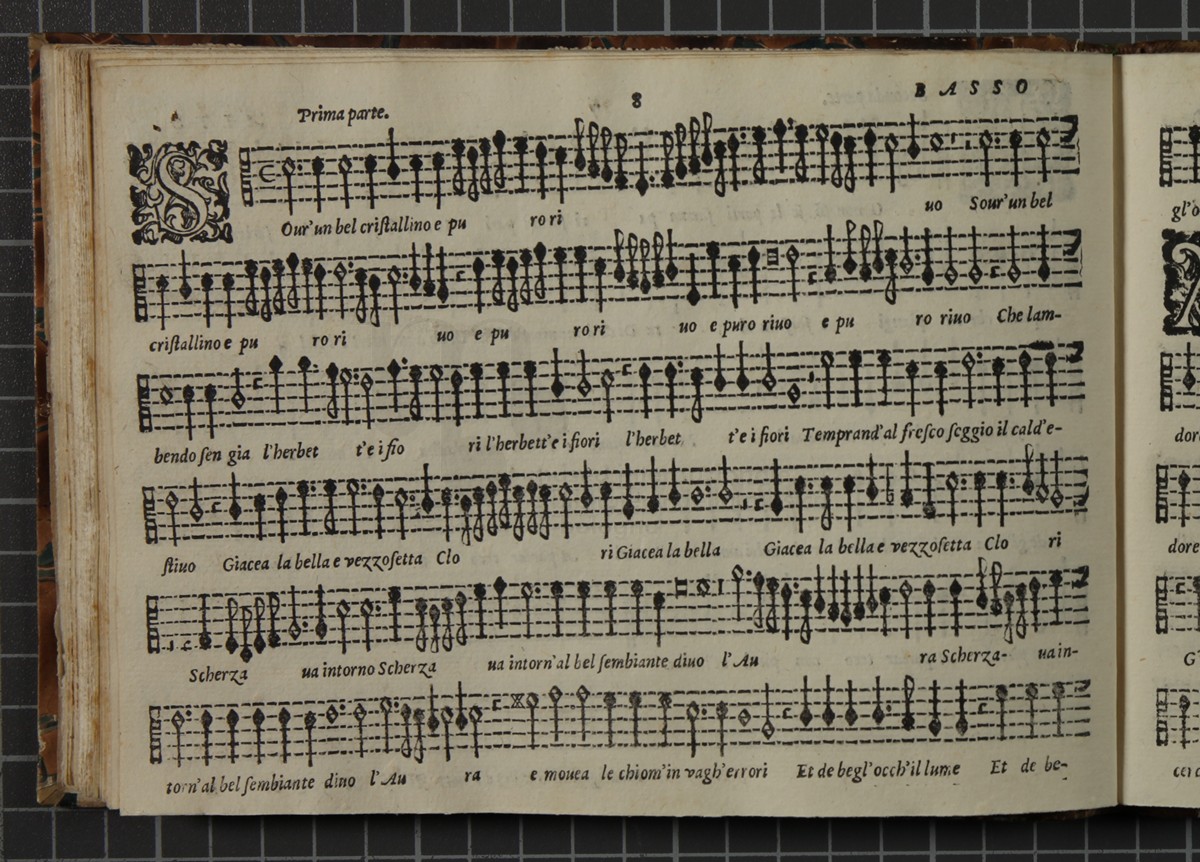 Prima parte. 8 BASSO
SOur'un bel cristallino e pu ro ri uo Sour'un bel
cristallino e pu ro ri uo e pu ro ri uo e puro riuo e pu ro riuo Che lam-
bendo sen gia l'herbet t'e i fio ri l'herbett'e i fiori l'herbet t'e i fiori Temprand'al fresco seggio il cald'e-
stiuo Giacea la bella e vezzosetta Clo ri Giacea la bella Giacea la bella e vezzosetta Clo ri
Scherza ua intorno Scherza ua intorn'al bel sembiante diuo l'Au ra Scherza- ua in-
torn'al bel sembiante diuo l'Au ra e mouea le chiom'in vagh'errori Et de begl'occh'il lume Et de be-
gl'o
dore
dore
G'